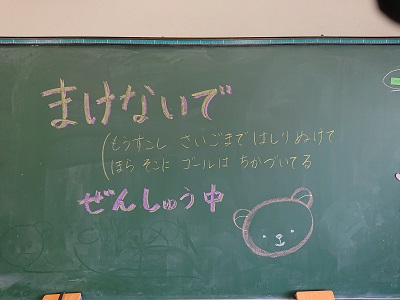 まけないで
(もうすこし さいごまで はしりぬけて
ほら そこに ゴールは ちかづいてる
ぜんしゅう中